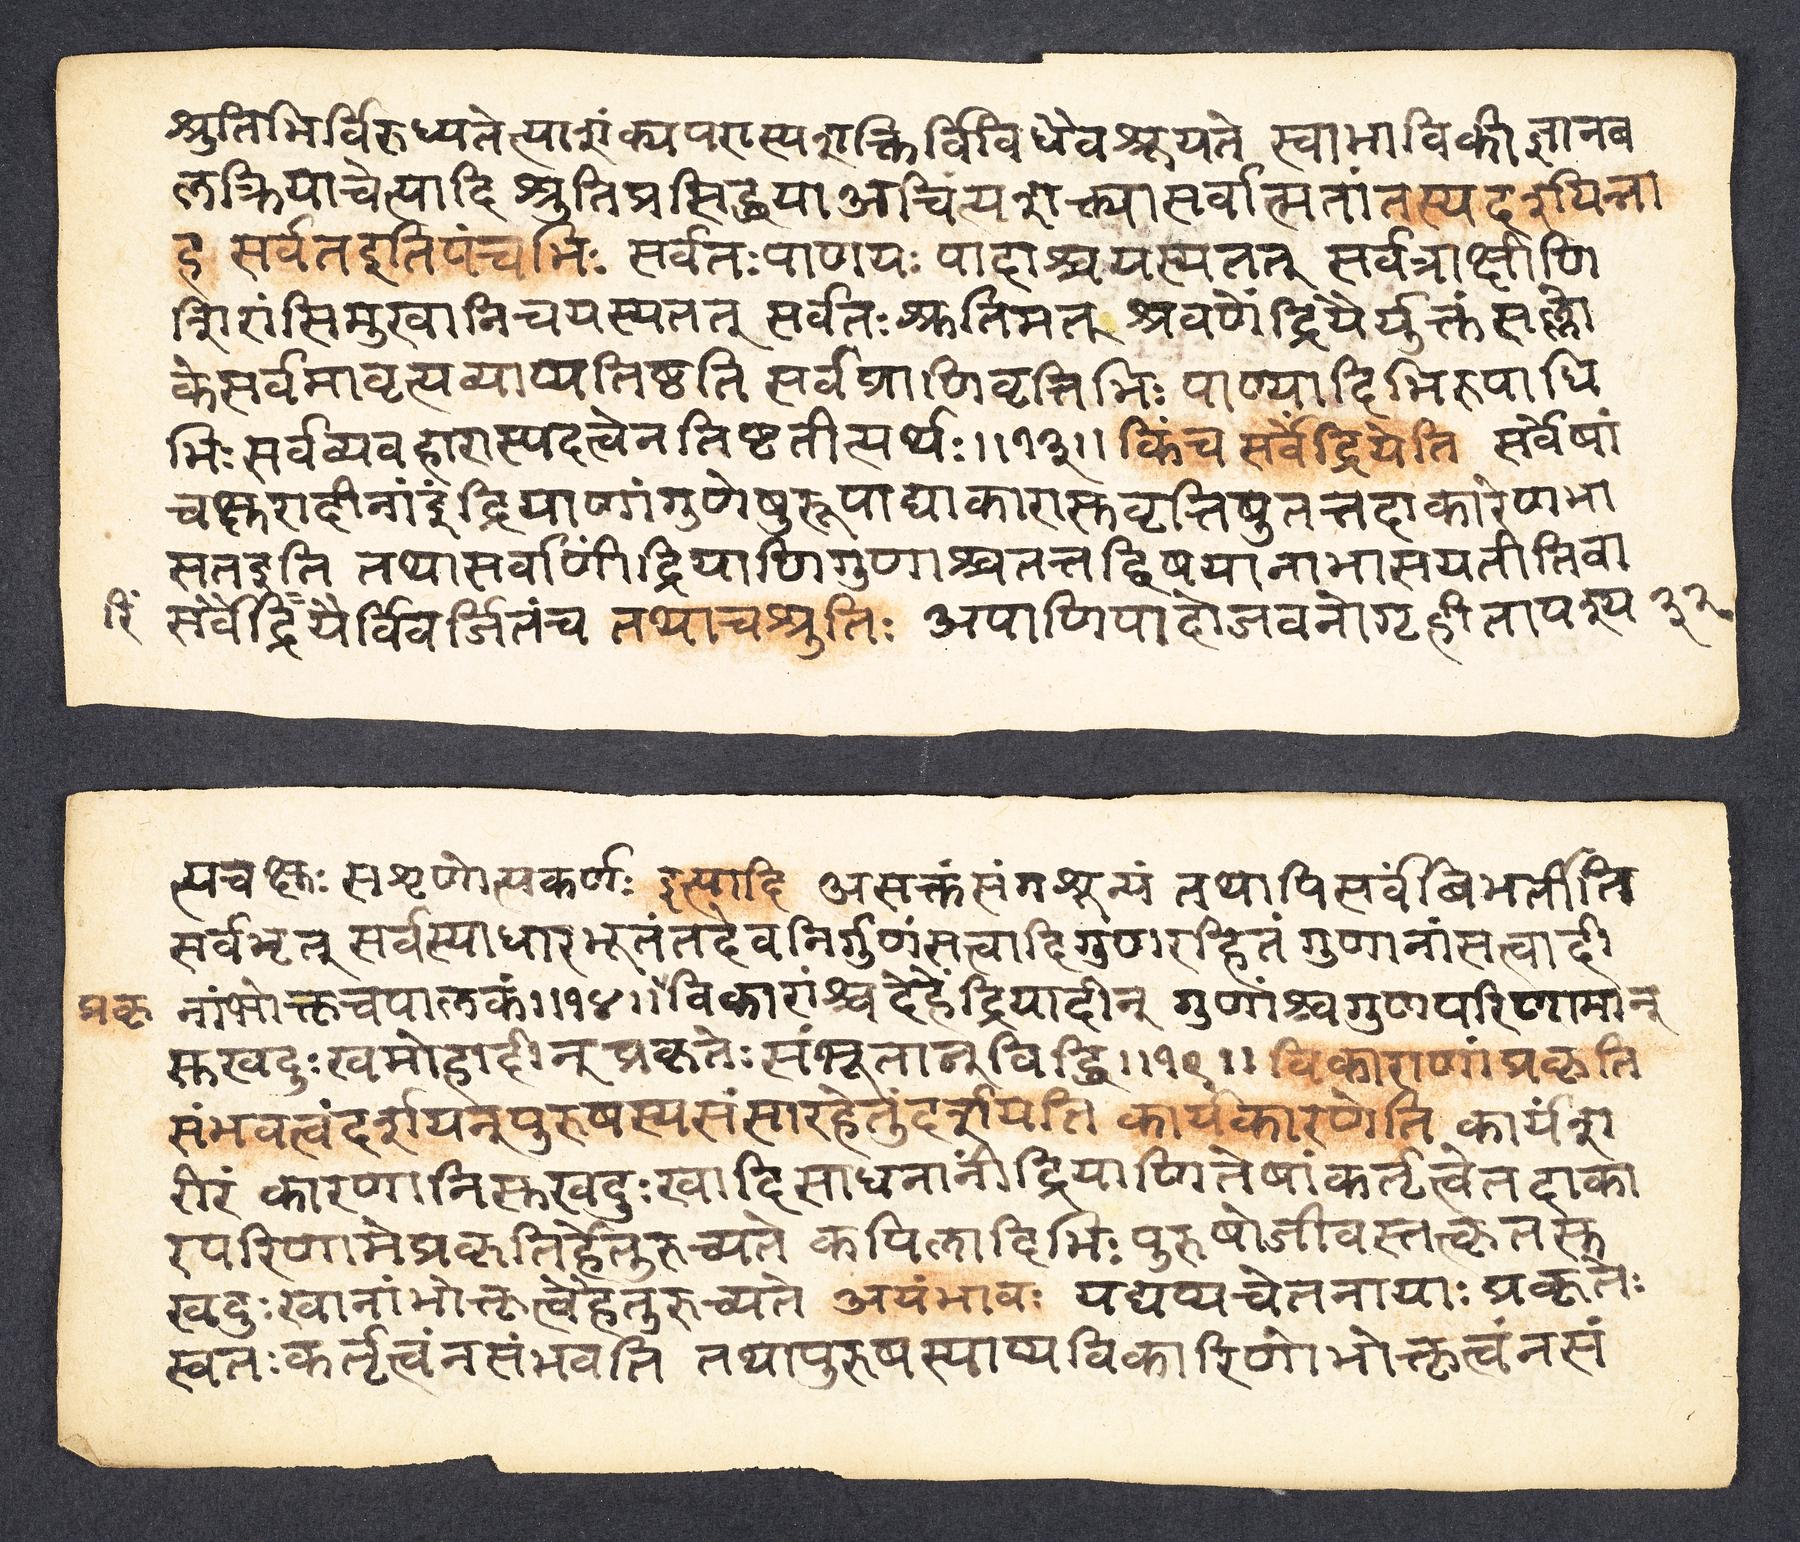 श्रुतिभिर्विरुध्यतेत्याशंक्यपरास्यशक्तिर्विविधैवश्रूयते स्वाभाविकीज्ञानब
लक्रियाचेत्यादि श्रुतिप्रसिद्धयाअचिंत्यशक्त्यासर्वात्मतांतस्यदर्शयिन्ना
ह सर्वतइतिपंचभिः सर्वतःपाणयः पादाश्चयस्यतत् सर्वत्राक्षीणि
शिरांसिमुखानिचयस्यतत् सर्वतःश्रुतिमत् श्रवणेंद्रियैर्युक्तंसल्लो
केसर्वमावृत्यव्याप्यतिष्ठति सर्वप्राणिवृत्तिभिः पाण्यादिभिरुपाधि
भिःसर्वव्यवहारास्पदत्वेनतिष्टतीत्यर्थः॥१३॥ किंच सर्वेंद्रियेति सर्वेषां
चक्षुरादीनांइंद्रियाणांगुणेषुरूपाद्याकारासुवृत्तिषुतत्तदाकारेणभा
सतइति तथासर्वाणींद्रियाणिगुणाश्चतत्तद्विषयानाभासयतीतिवा
रिं सर्वैंद्रियैर्विवर्जितंच तथाचश्रुतिः अपाणिपादोजवनोगृहीतापश्य ३२
त्यचक्षुः सशृणोत्यकर्णः इत्यादि असक्तंसंगशून्यं तथापिसर्वंबिभर्तीति
सर्वभृत् सर्वस्याधारभूतंतदेवनिर्गुणंसत्वादिगुणरहितं गुणानांसत्वादी
प्रकृ नांभोक्तृचपालकं॥१४॥विकारांश्चदेहेंद्रियादीन् गुणांश्चगुणपरिणामान्
सुखदुःखमोहादीन्प्रकृतेःसंभूतान्विद्धि॥१९॥ विकाराणांप्रकृति
संभवत्वंदर्शयन्पुरुषस्यसंसारहेतुंदर्शयति कार्यकारणेति कार्यंश
रीरं कारणानिसुखदुःखादिसाधनानींद्रियाणितेषांकर्तृत्वेतदाका
रपरिणामेप्रकृतिर्हेतुरुच्यते कपिलादिभिः पुरुषोजीवस्तत्कृतसु
खदुःखानांभोक्तृत्वेहेतुरुच्यते अयंभावः यद्यप्यचेतनायाः प्रकृतेः
स्वतःकर्तृत्वंनसंभवति तथापुरुषस्याप्यविकारिणोभोक्तृत्वंनसं